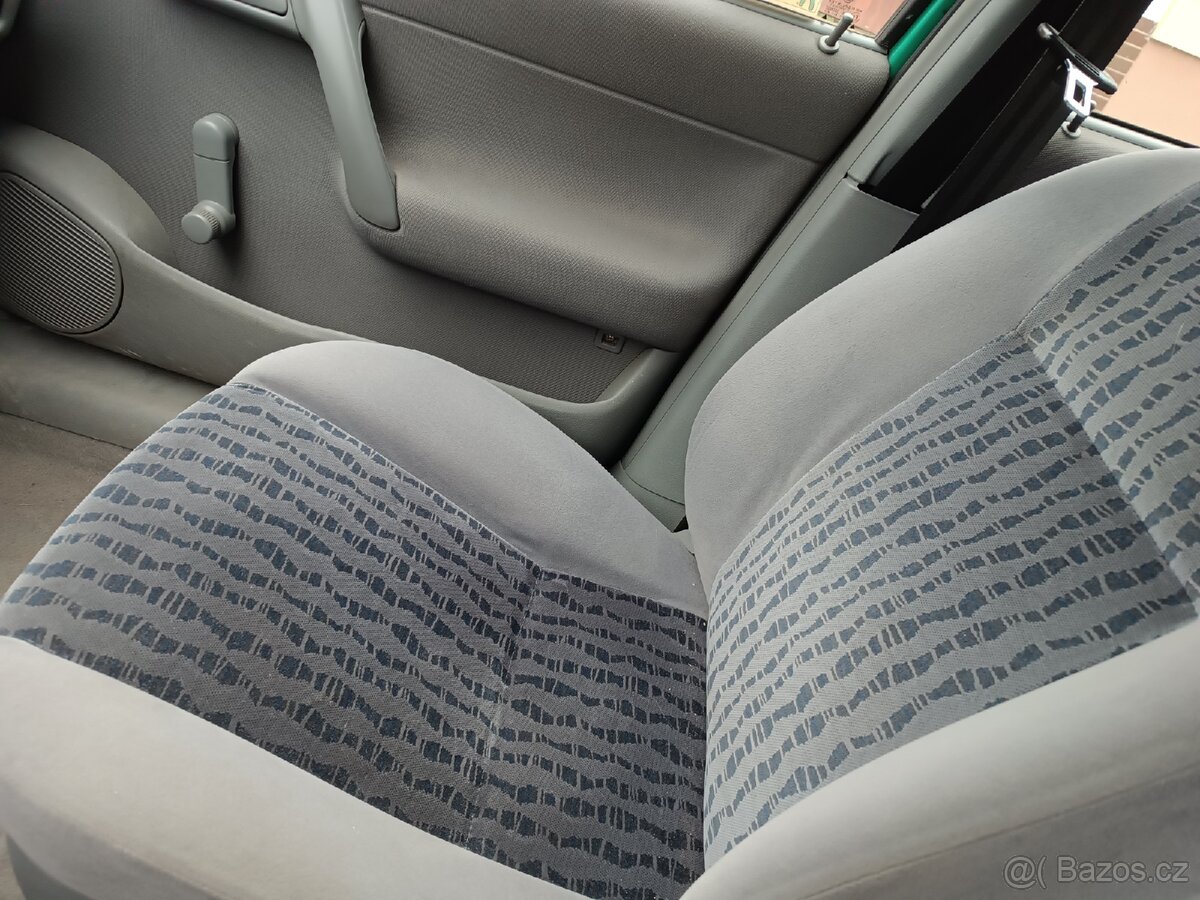 @( Bazos.cz